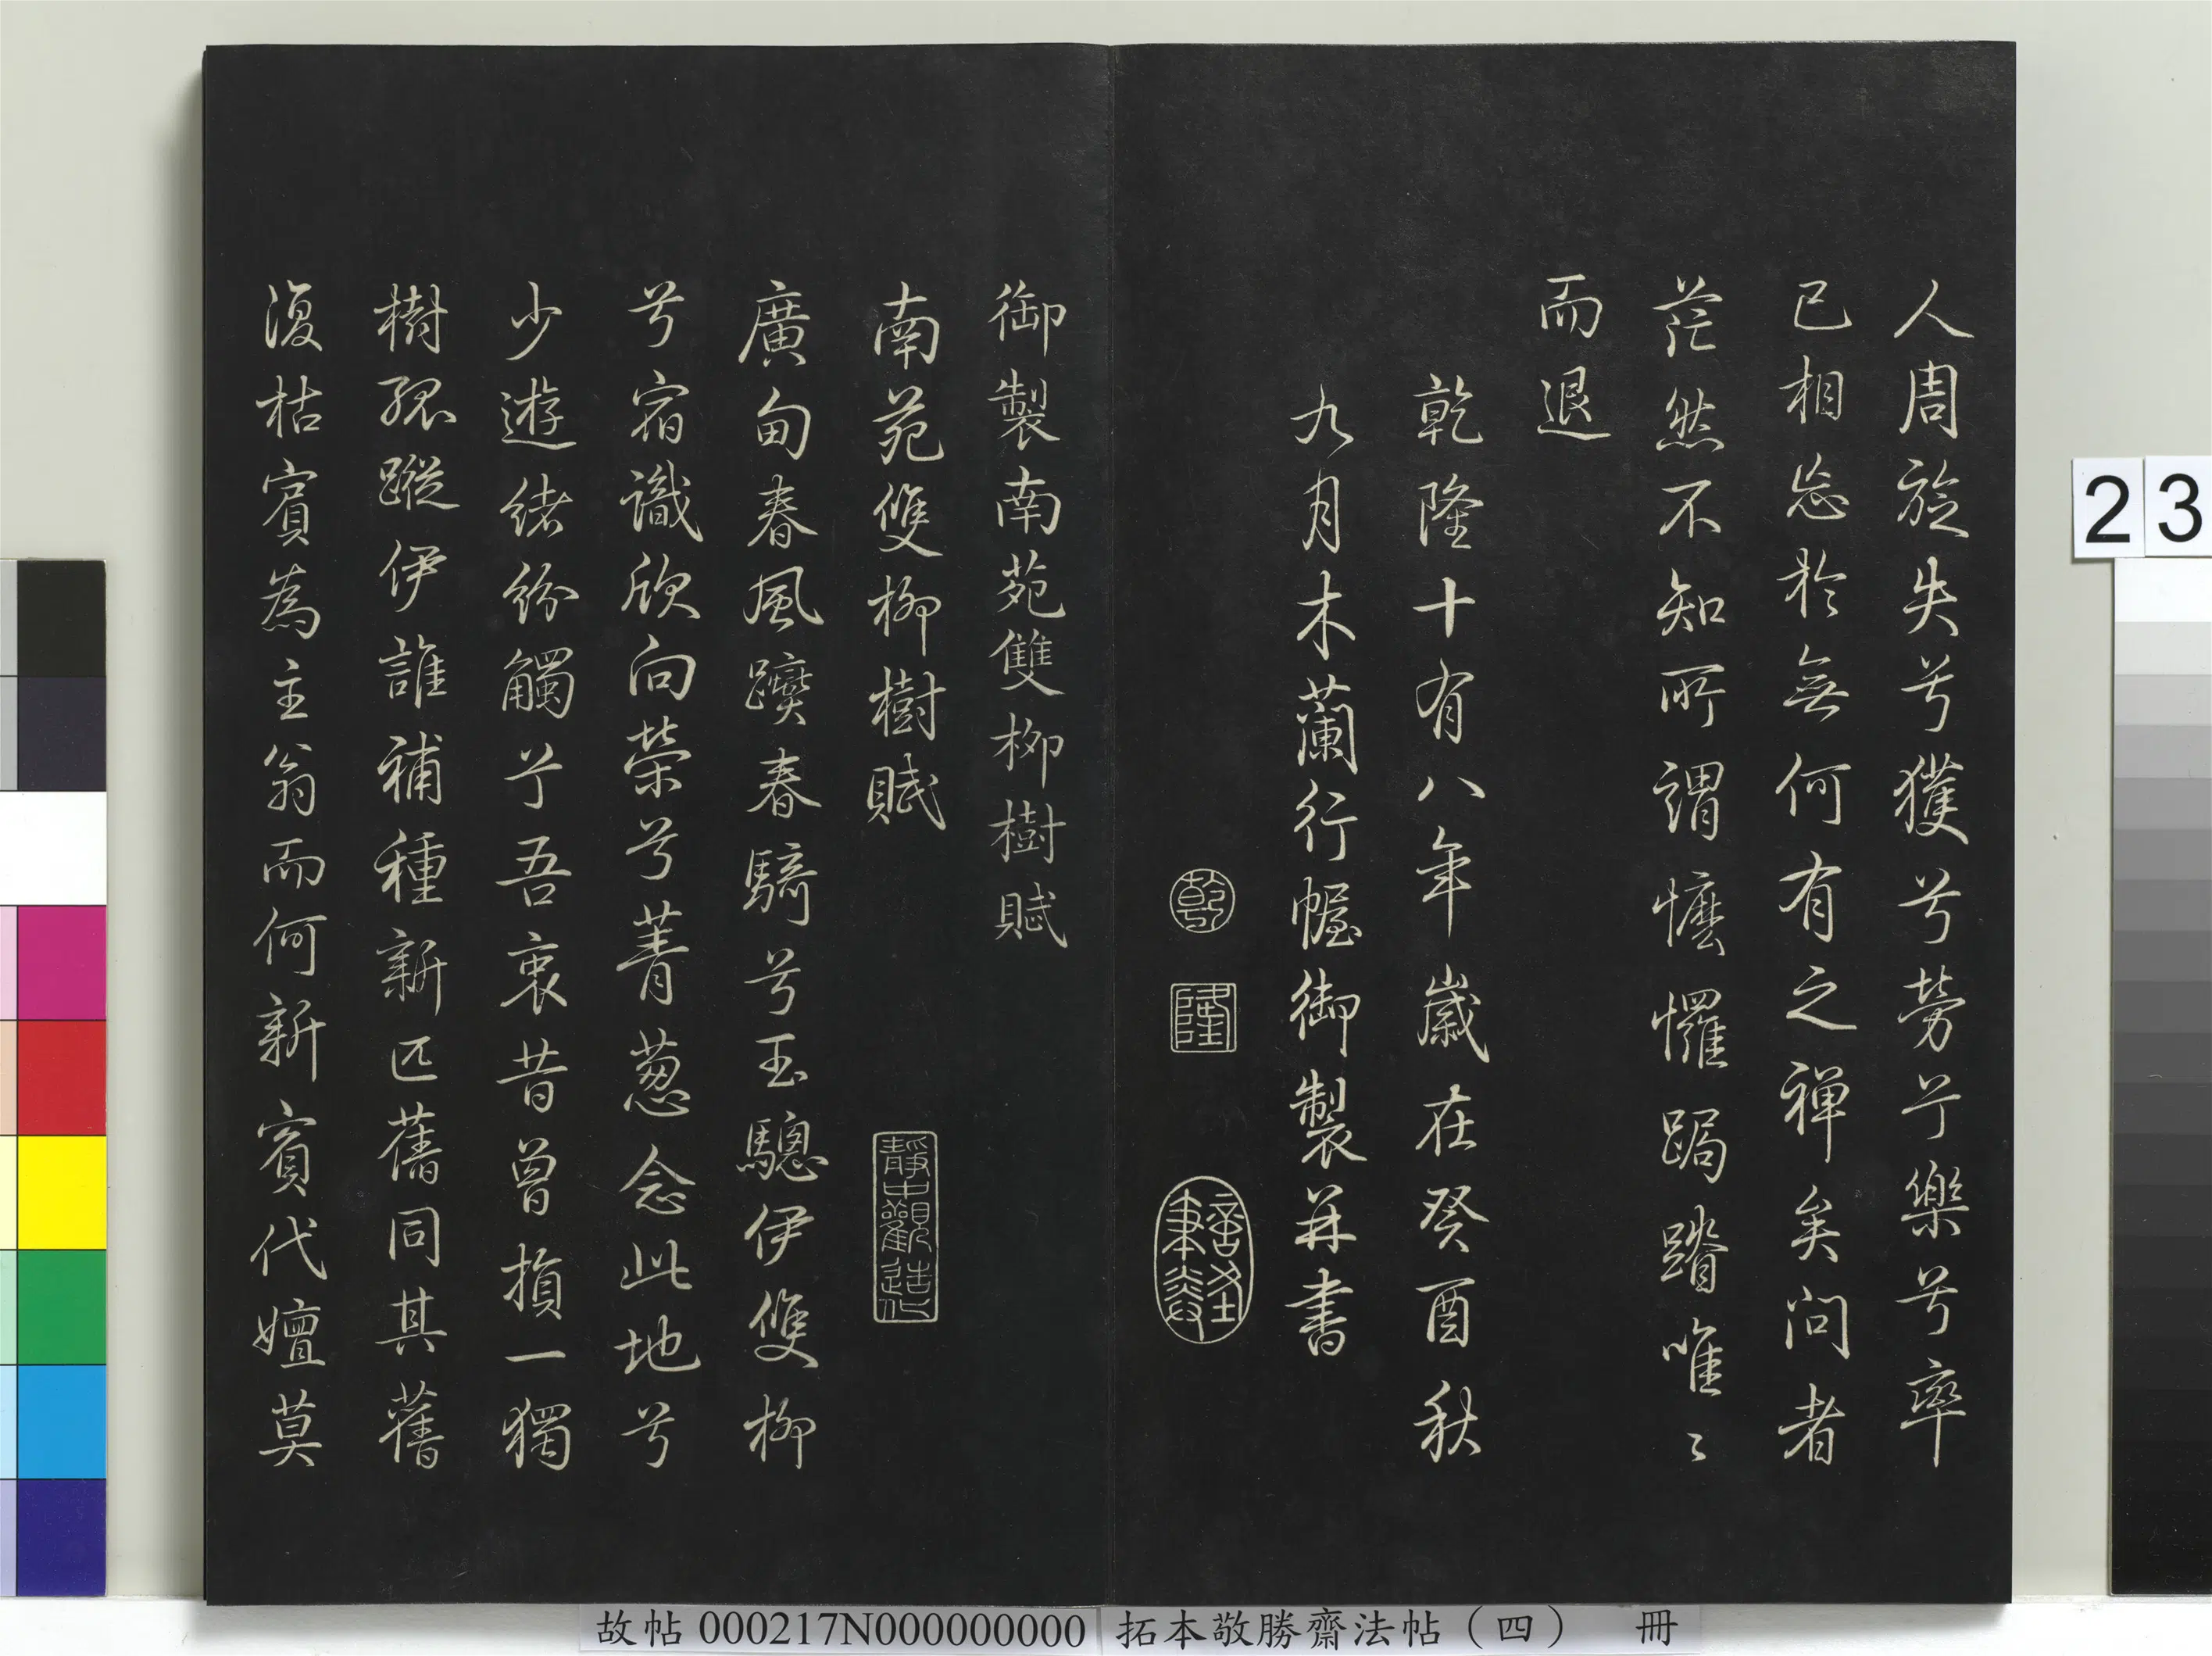 人周旋失兮獲兮勞兮樂兮率
已相忘於無何有之禅矣問者
茫然不知所謂懡㦬跼蹐唯〻
而退
乾隆十有八年歲在癸酉秋
九月木蘭行幄御製并書
乾
隆
御製南苑雙柳樹賦
南苑雙柳樹賦
靜中觀造化
廣甸春風躓春騎兮玉驄伊雙柳
兮宿識欣向榮兮菁葱念此地兮
少遊緒紛觸兮吾衷昔曾損一獨
樹孤蹤伊誰補種新匹舊同其舊
復枯賓為主翁而何新賓代嬗莫
23
故帖 000217N000000000 拓本敬勝齋法帖（四） 冊